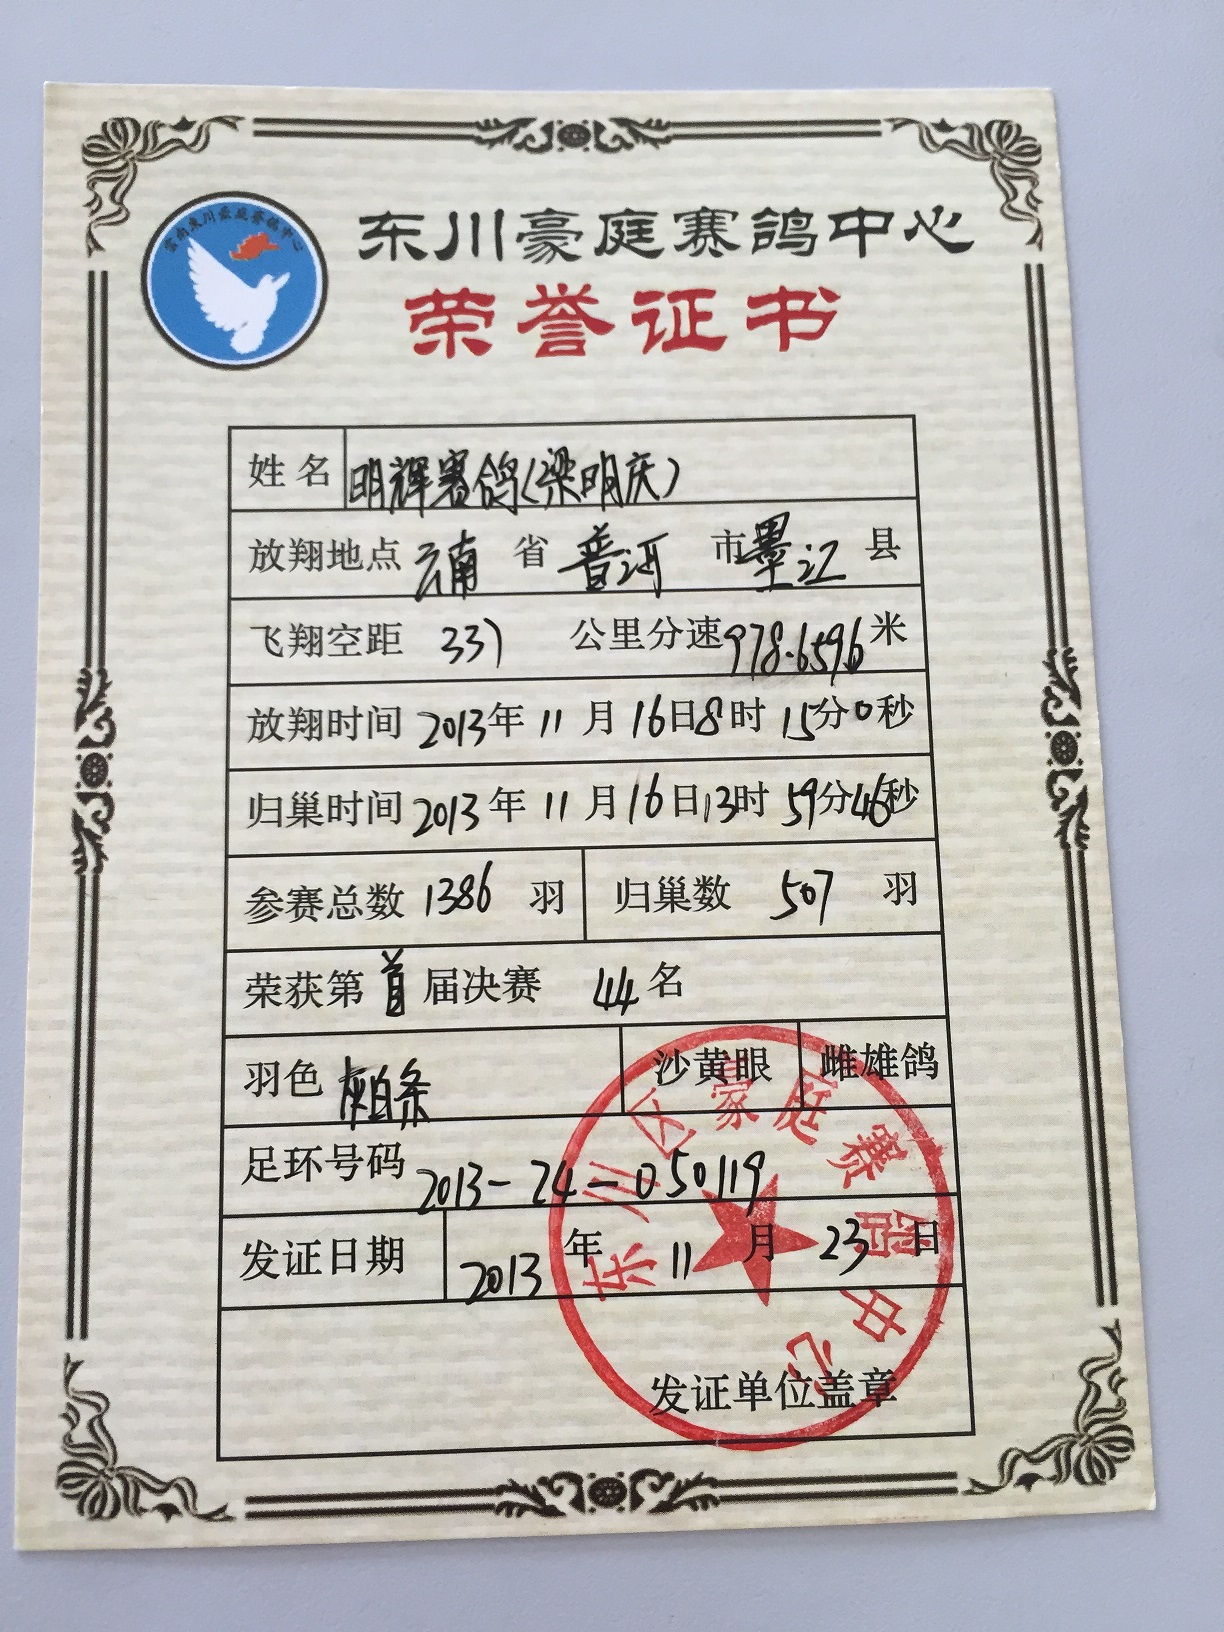 雲南東川豪庭賽鴿中心
东川豪庭赛鸽中心
荣誉证书
姓名 明辉赛鸽(梁明庆)
放翔地点 云南 省 普洱 市 墨江 县
飞翔空距 337 公里分速 978.6596 米
放翔时间 2013年 11 月 16日 8时 15分 0秒
归巢时间 2013年 11 月 16日 13时 59分 46秒
参赛总数 1386 羽 归巢数 507 羽
荣获第 首 届决赛 44 名
羽色 灰白条 沙黄眼 雌雄鸽
足环号码 2013-24-050119
发证日期 2013 年 11 月 23 日
发证单位盖章
东川区豪庭赛鸽中心